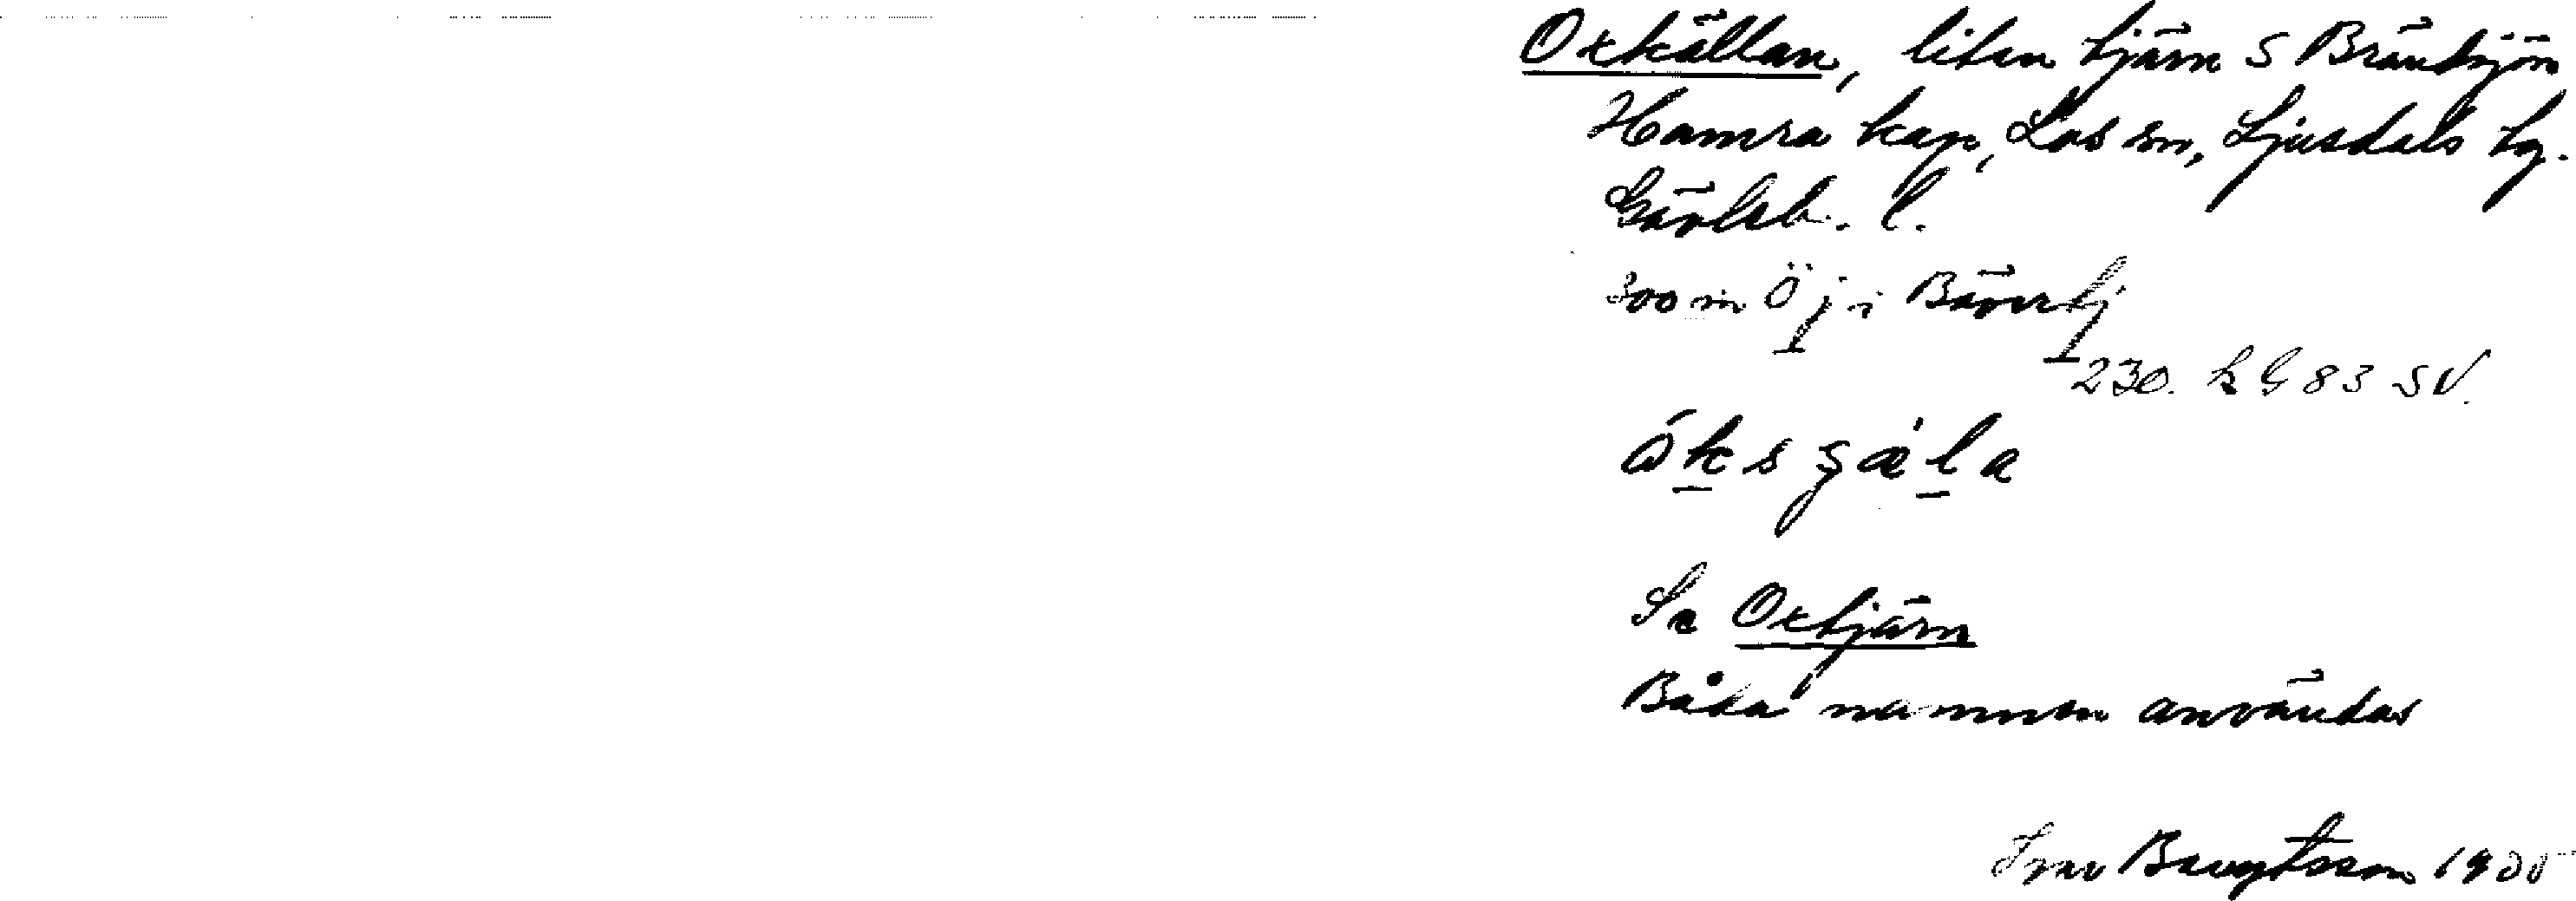 Oxkällan, liten tjärn S Brändsjön
Hamra kap, Los sn, Ljusdals tg.
Gävleb. l.
300 m Ö j i Bävertj
230. k G 83 SV.
ó k s ç æ̀ l a
Se Oxtjärn
Båda namnen användas
Ivar Bengtsson 1935